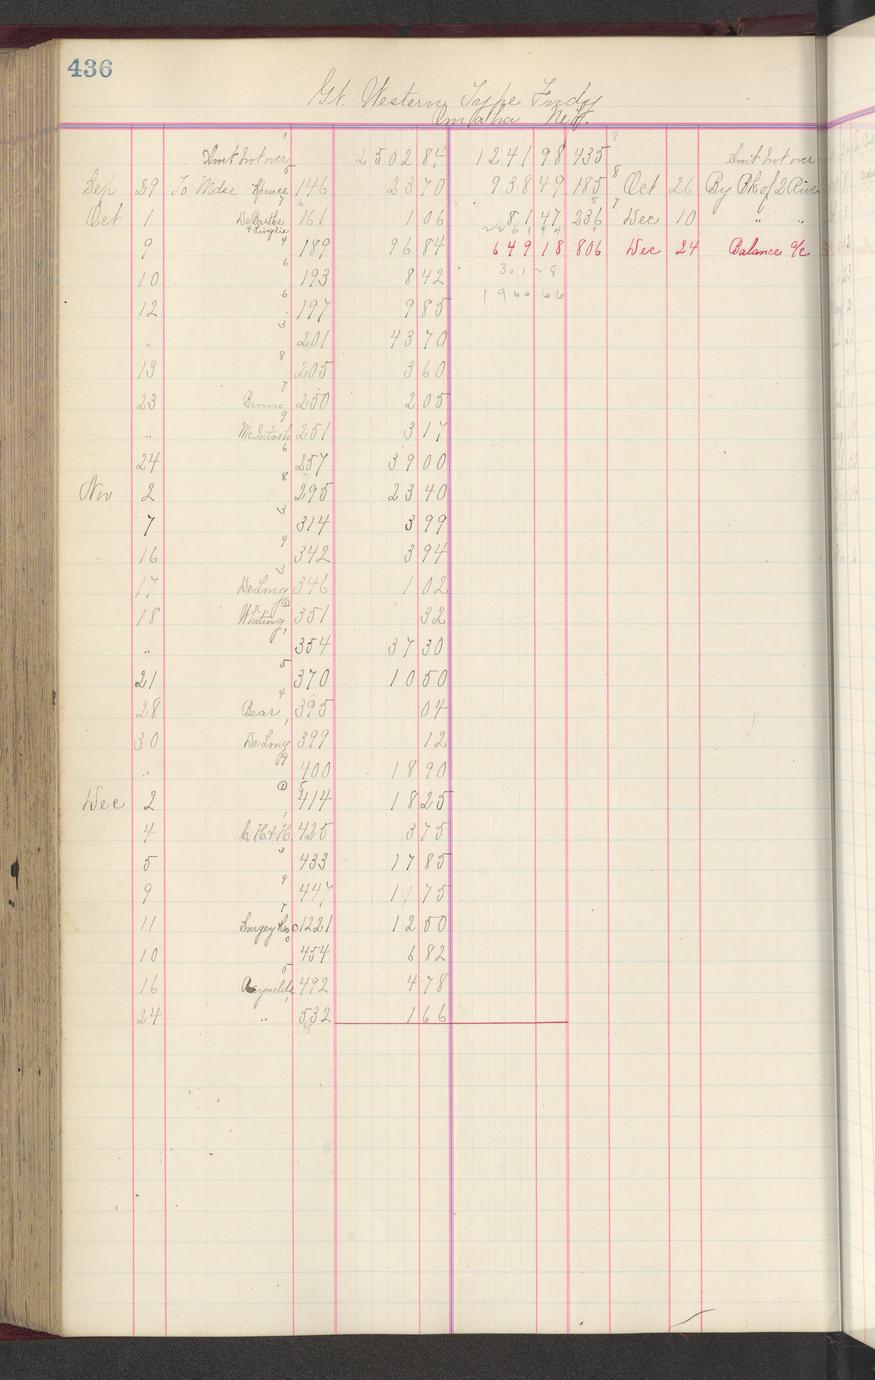 436
Gt. Western Type Fndy
Omaha Neb.
Amt brot over 2502 84 1241 98 435 Amt brot over
Sep 29 To Mdse 146 23 70 938 49 185 Oct 26 By Bk of 2 Rivers
Oct 1 DeBarthe 161 1 06 81 47 236 Dec 10 " "
9 189 96 84 649 18 806 Dec 24 Balance a/c
10 193 8 42 301 28
12 197 9 85 1960 66
" 201 43 70
13 205 3 60
23 250 2 05
" McIntosh 251 3 17
24 257 39 00
Nov 2 295 23 40
7 314 3 99
16 342 3 94
17 DeLong 346 1 02
18 Whiting 351 32
" 354 37 30
21 370 10 50
28 Bear 395 04
30 DeLong 399 12
" 400 18 90
Dec 2 414 18 25
4 H & H 425 3 75
5 433 17 85
9 447 11 75
11 1221 12 50
10 454 6 82
16 Reynolds 492 4 78
24 " 532 1 66